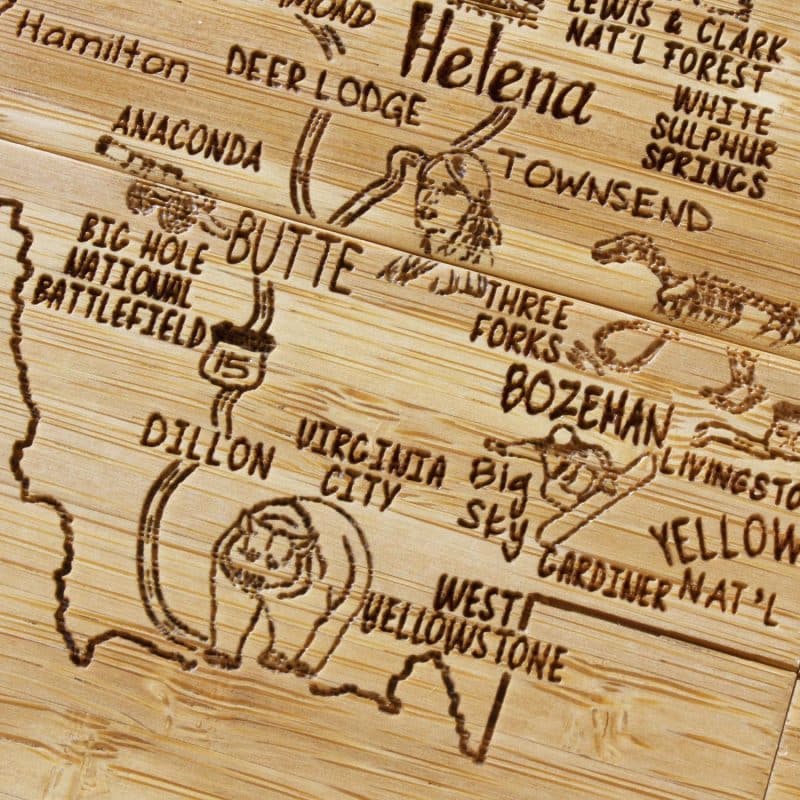 MOND
LEWIS & CLARK
NAT'L FOREST
Hamilton
DEER LODGE
Helena
WHITE
SULPHUR
SPRINGS
ANACONDA
TOWNSEND
BIG HOLE
NATIONAL
BATTLEFIELD
BUTTE
THREE
FORKS
15
BOZEMAN
DILLON
VIRGINIA
CITY
Big
Sky
LIVINGSTO
GARDINER
YELLOW
NAT'L
WEST
YELLOWSTONE